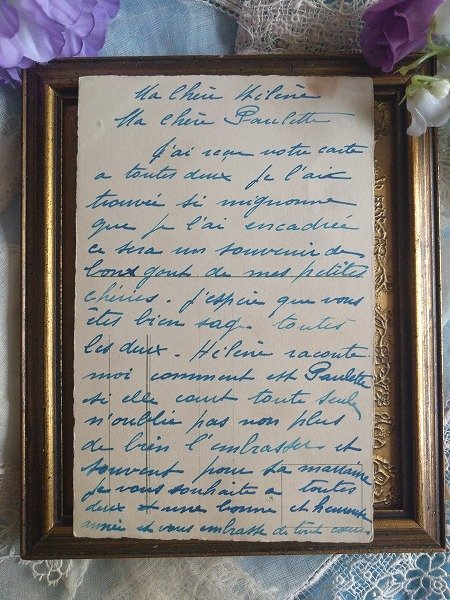 Ma Chère Hélène
Ma Chère Paulette
J'ai reçu votre carte
a toutes deux je l'aie
trouvée si mignonne
que je l'ai encadrée
ce sera un souvenir du
bon gout de mes petites
chéries. J'espère que vous
êtes bien sag. toutes
les deux. Hélène raconte
moi comment est Paulette
si elle court toute seule
n'oublie pas non plus
de bien l'embrasser et
souvent pour sa marraine
je vous souhaite a toutes
deux et une bonne et heureuse
année et vous embrasse de tout cœur.